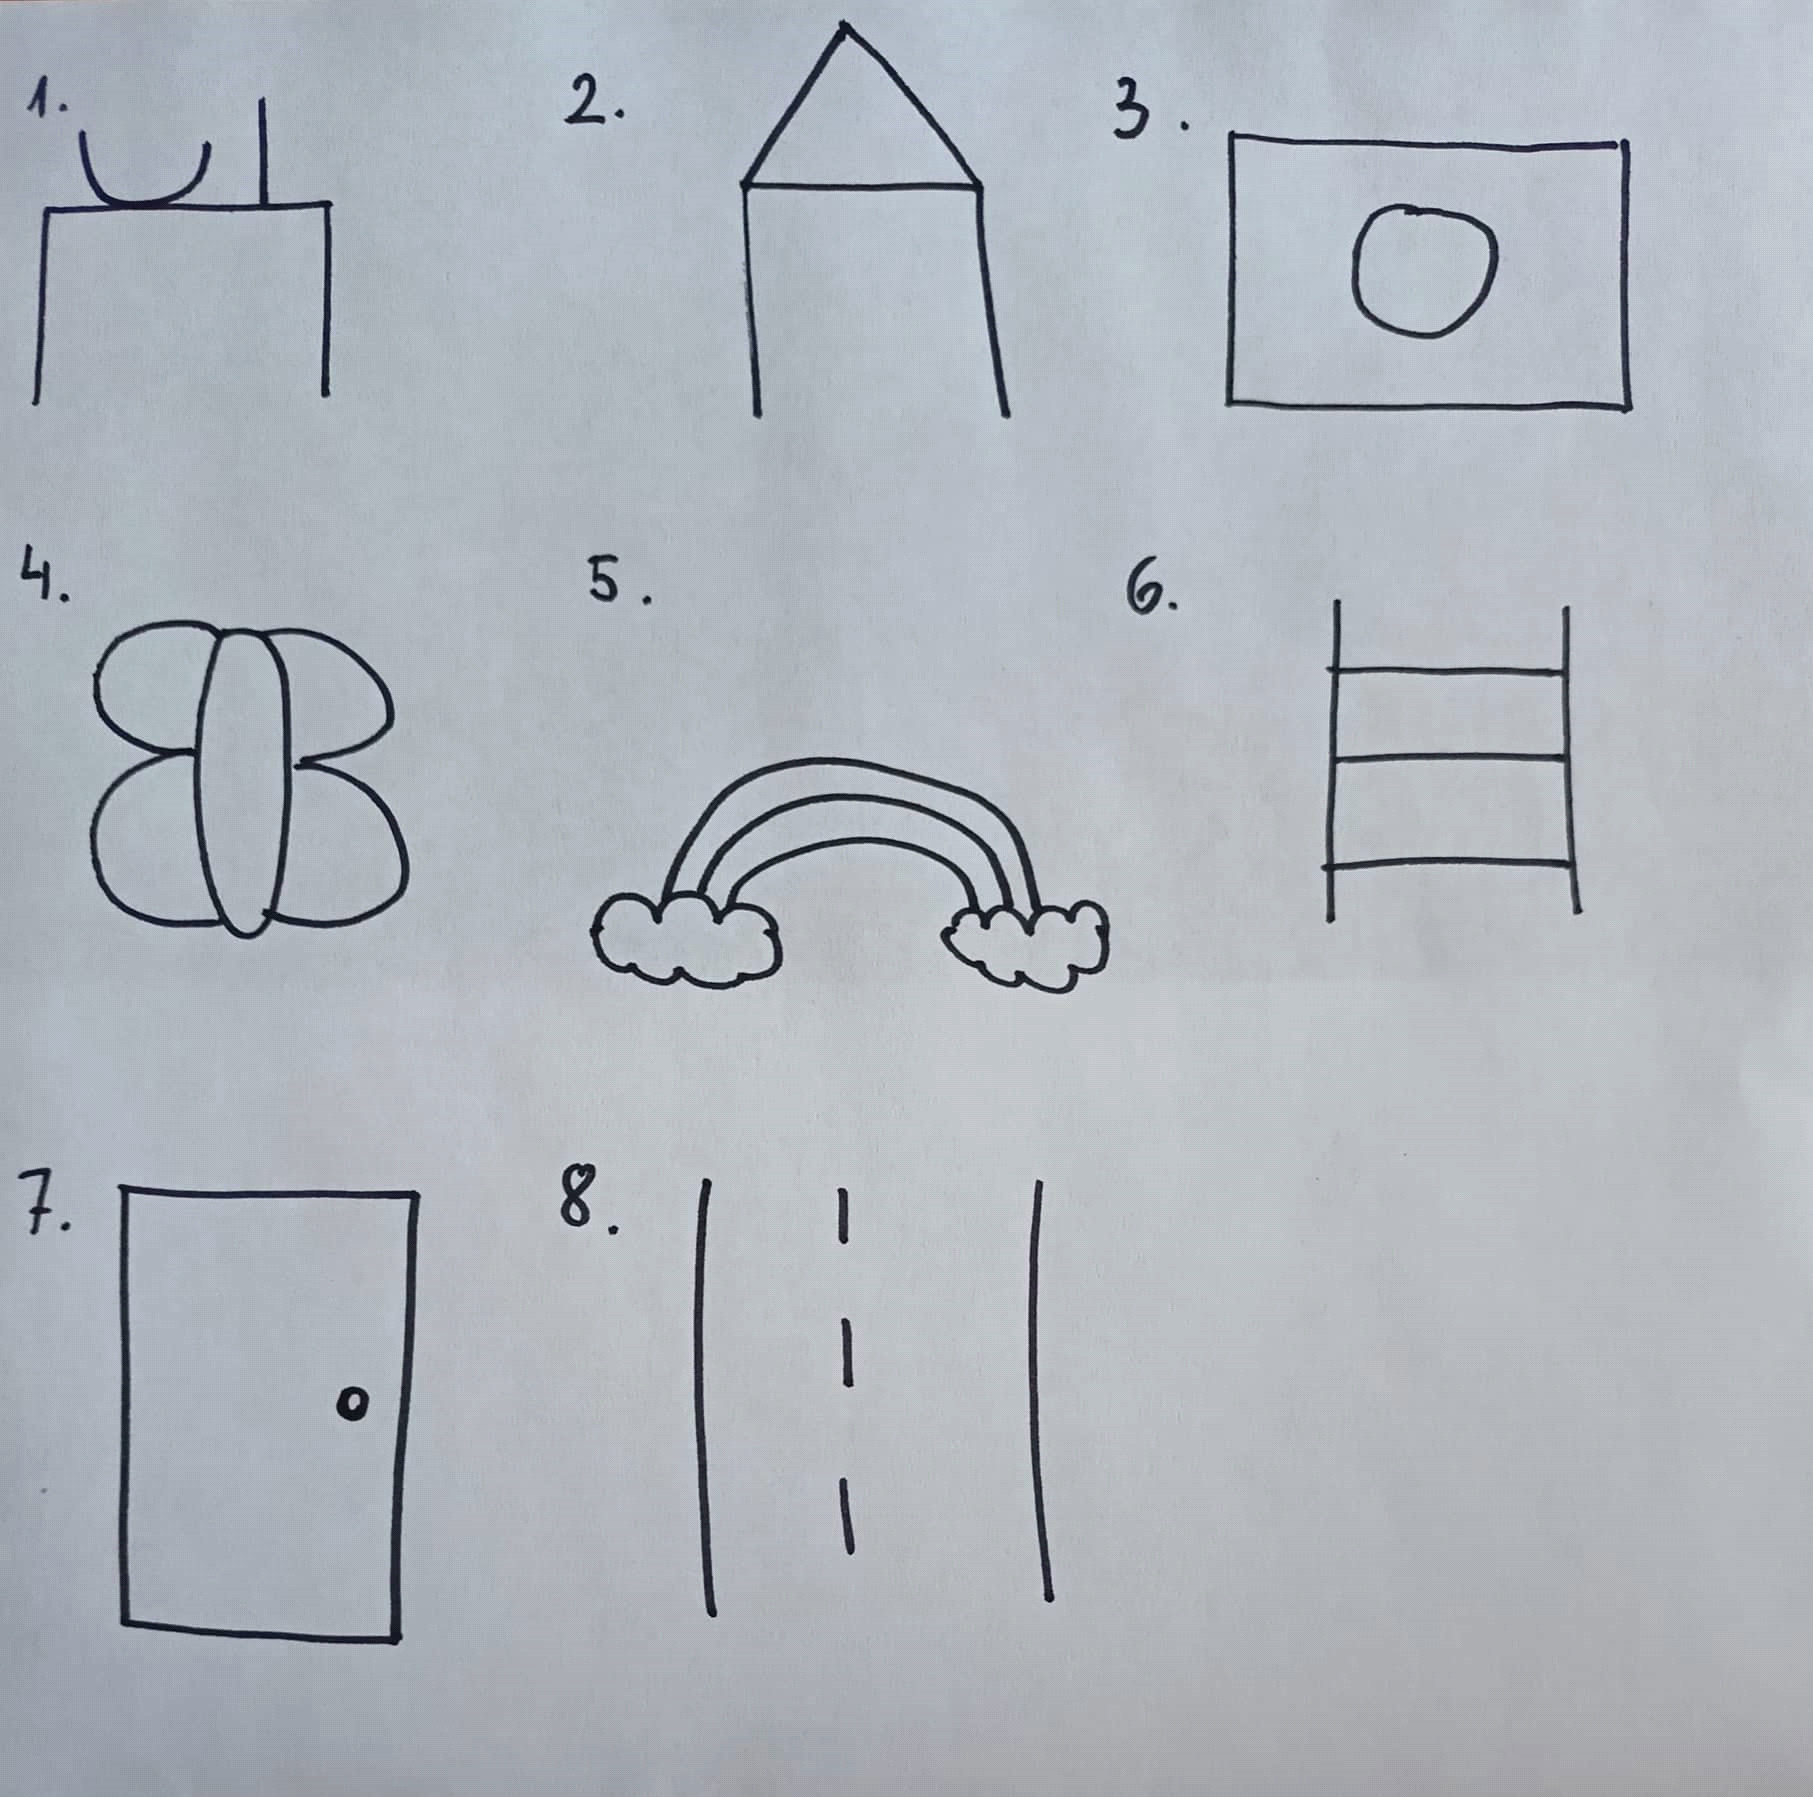 1. 2. 3.
4. 5. 6.
7. 8.